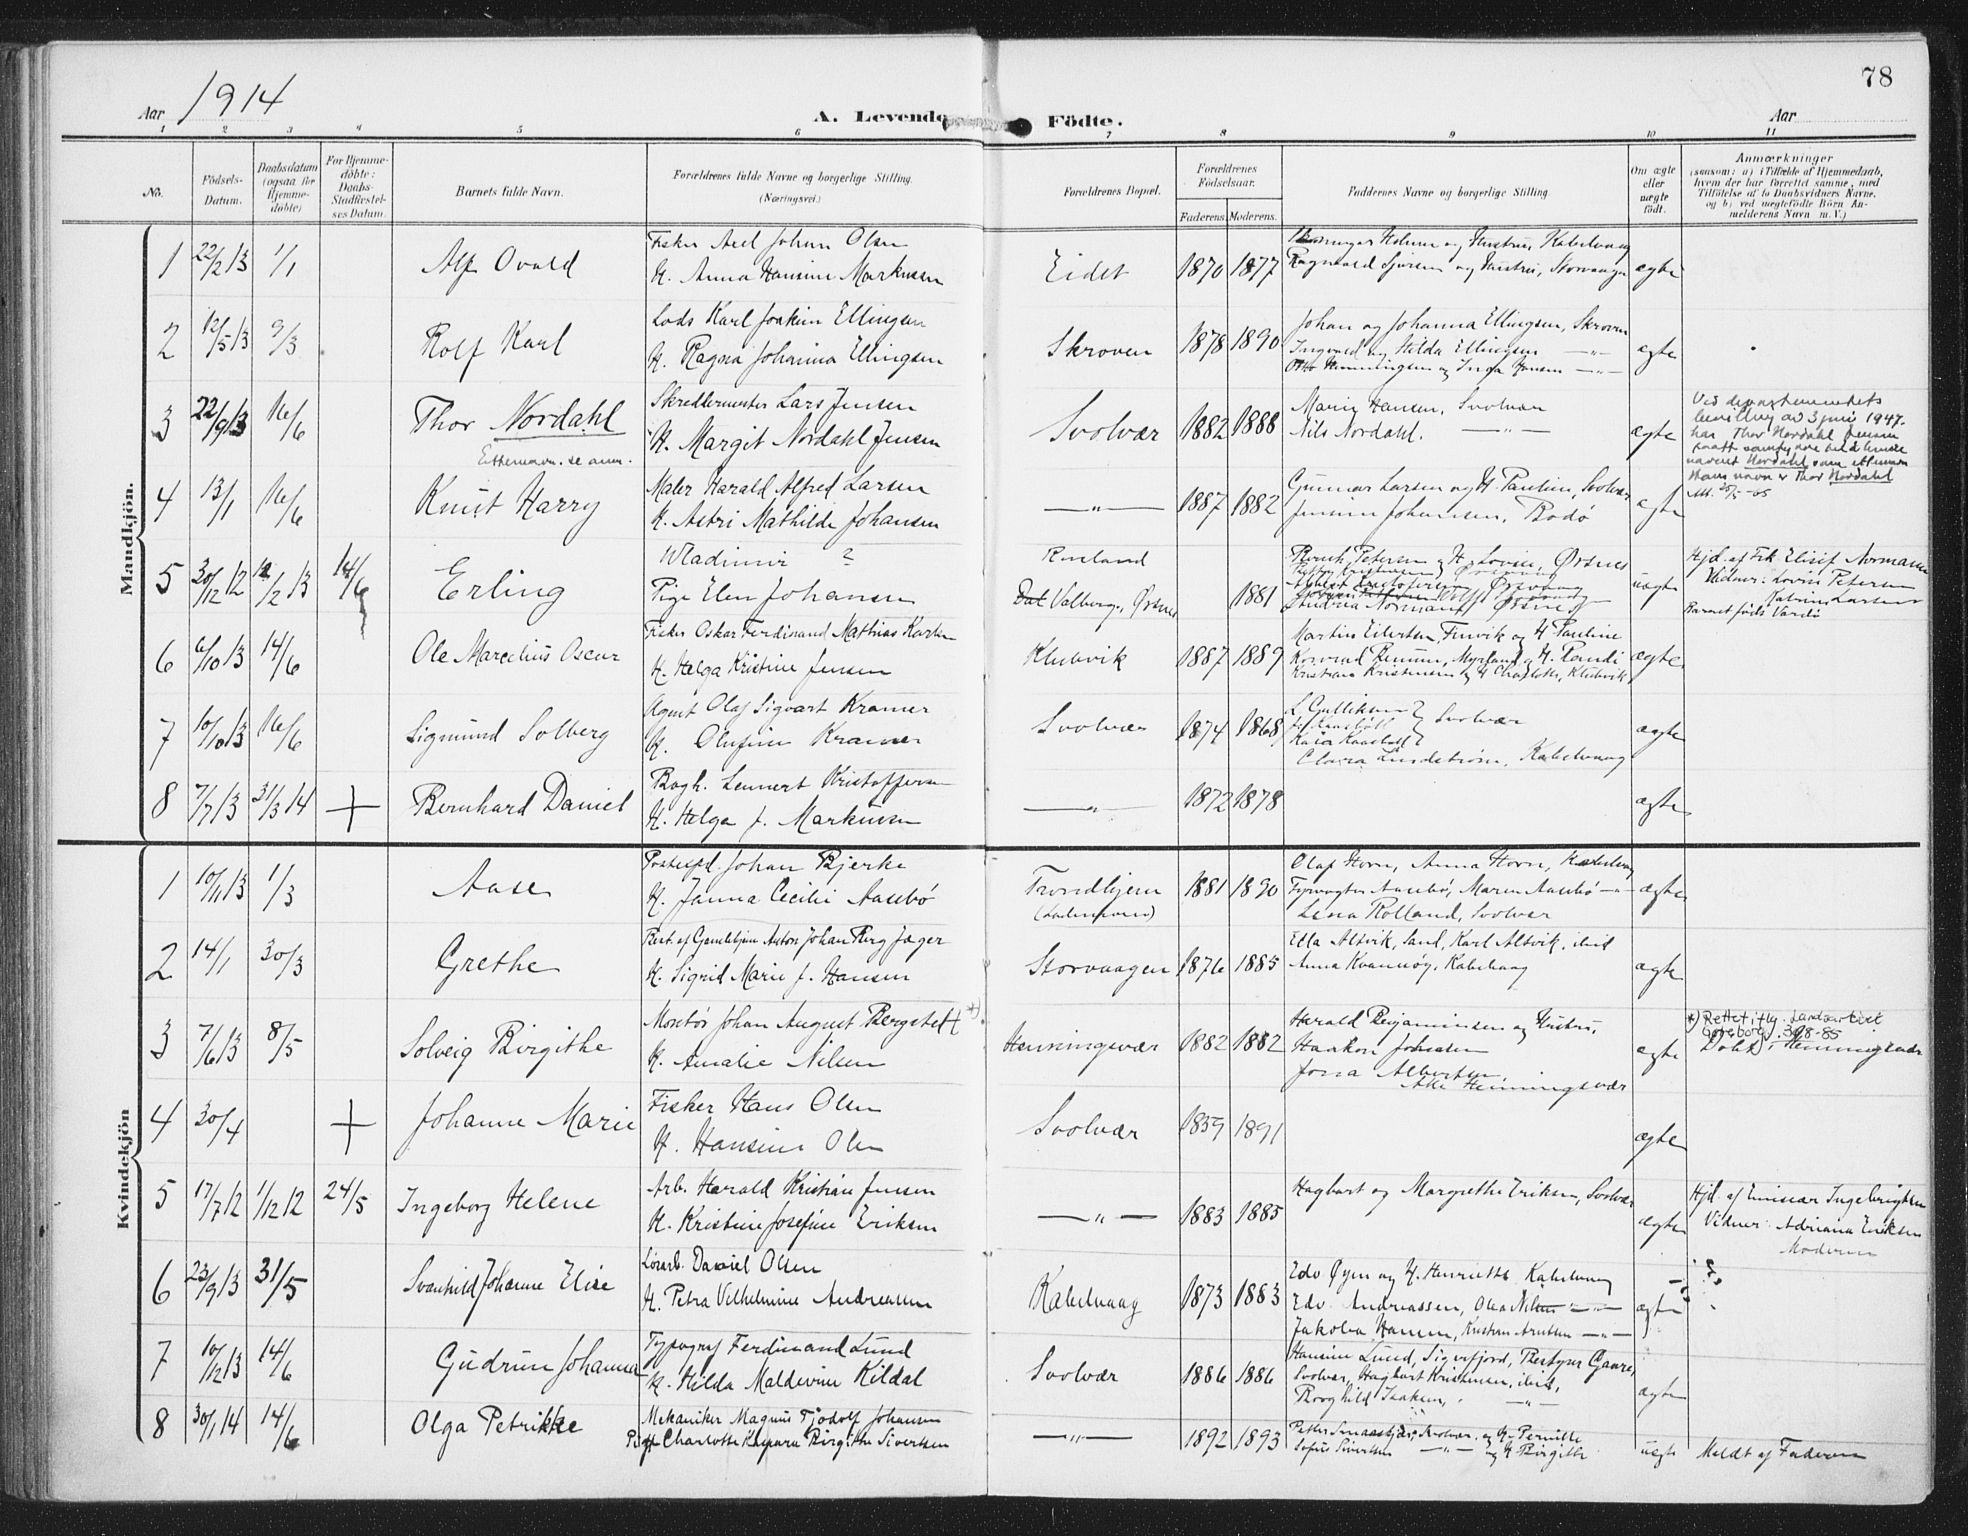 78
Aar 1914
A. Levende Födte.
Aar
1 2 3 4 5 6 7 8 9 10 11
No.
Födsels-Datum.
Daabsdatum (ogsaa for Hjemme-döbte)
For Hjemme-döbte: Daabs-Stadfestel-ses Datum.
Barnets fulde Navn.
Forældrenes fulde Navne og borgerlige Stilling. (Næringsvei.)
Forældrenes Bopæl.
Forældrenes Födselsaar.
Faderens. Moderens.
Faddernes Navne og borgerlige Stilling.
Om ægte eller uægte födt.
Anmærkninger
(saasom: a) i Tilfælde af Hjemmedaab,
hvem der har forrettet samme, med
Tilföielse af to Daabsvidners Navne.
og b) ved uegtefödte Börn An-
melderens Navn m. V.)
Mandkjön.
1 22/2 13 1/1 Alf Ovald
Fisker Axel Johan Olsen
H. Anna Hansine Markussen
Eidet 1870 1877
Holmen og Hustru, Kabelvaag
Ragnvald Sjursen og Hustru, Storvaagen
ægte
2 12/5 13 9/3 Rolf Karl
Lods Karl Joakim Ellingsen
H. Ragna Johanna Ellingsen
Skroven 1878 1890
Johan og Johanna Ellingsen, Skroven
Ingvald og Hilda Ellingsen —"—
Otto Henningsen og Inga Hansen —"—
ægte
3 22/9 13 16/6 Thor Nordahl
Etternavn. se anm.
Skreddermester Lars Jensen
H. Margit Nordahl Jensen
Svolvær 1882 1888
Marie Hansen, Svolvær
Nils Nordahl. —"—
ægte
Ved departementets
bevilling av 3 juni 1947
har Thor Nordahl Jensen
navnet Nordahl som etternavn
Hans navn er Thor Nordahl
4 13/1 16/6 Knut Harry
Maler Harald Alfred Larsen
H. Astri Mathilde Johansen
—"— 1887 1882
Gunnar Larsen og H. Pauline, Svolvær
Jensine Johansen, Bodø
ægte
5 30/12 12 12/2 13 14/6 Erling
Wladimir ?
Pige Elen Johansen
Rusland
Valberg, Ørsnes 1881
Petersen og H. Lovise, Ørsnes
Andrea Normann, Ørsnes
uægte
Hjd. af Frk Elisif Normann
Vidner: Lovise Petersen
Katrine Larsen
Barnet föds Vardø
6 6/10 13 14/6 Ole Marcelius Oscar
Fisker Oskar Ferdinand Mathias Karlsen
H. Helga Kristine Jensen
Klubvik 1887 1889
Martin Eilertsen, Finvik og H. Pauline
Konrad Benum, Myrland og H. Randi
Kristian Kristensen og H Charlotte, Klubvik
ægte
7 10/10 13 16/6 Sigmund Solberg
Agent Olaf Sigvart Kramer
H. Olufine Kramer
Svolvær 1874 1868
L Gulliksen
Svolvær
Clara Lindstrøm, Kabelvaag
ægte
8 7/7 13 31/3 14 + Bernhard Daniel
Bogh. Lennert Kristoffersen
H. Helga f. Markussen
—"— 1872 1878
ægte
Kvindekjön
1 10/11 13 1/3 Aase
Postexpd. Johan Bjerke
H. Janna Cecilie Aasebø
Trondhjem
(Lademoen)
1881 1890
Olaf Horn, Anna Horn, Kabelvaag
Fyrvogter Aasebø, Maren Aasebø —"—
Lena Rolland, Svolvær
ægte
2 14/1 30/3 Grethe
Best. af Gamlehjem Anton Johan Berg Jæger
H. Sigrid Marie f. Hansen
Storvaagen 1876 1885
Ella Altvik, Sand, Karl Altvik, ibid
Anna Kvannøy, Kabelvaag
ægte
3 7/6 13 8/5 Solveig Birgithe
Montør Johan August Bergstett *)
H. Amalie Nilsen
Henningsvær 1882 1882
Harald Benjaminsen og Hustru,
Haakon Johnsen
Jossa Albertsen
Alle Henningsvær
ægte
*) Rettet ifly. Landsarkivet
Göteborg. 30/8-85
Döbt i Henningsvær
4 30/4 + Johanne Marie
Fisker Hans Olsen
H. Hansine Olsen
Svolvær 1859 1891
ægte
5 17/7 12 1/12 12 24/5 Ingeborg Helene
Arb. Harald Kristian Jensen
H. Kristine Josefine Eriksen
—"— 1883 1885
Hagbart og Margrethe Eriksen, Svolvær
ægte
Hjd. af Emissær Ingebrigtsen
Vidner: Adriana Eriksen
Moderen
6 23/9 13 31/5 Svanhild Johanne Elise
Løsarb. Daniel Olsen
H. Petra Vilhelmine Andreassen
Kabelvaag 1873 1883
Edv Øyen og H. Henriette Kabelvaag
Edv. Andreassen, Olea Nilsen —"—
Jakoba Hansen, Kristian Arntsen —"—
ægte
7 10/12 13 14/6 Gudrun Johanna
Typograf Ferdinand Lund
H. Hilda Maldevine Kildal
Svolvær 1886 1886
Hansine Lund, Sigerfjord, Bestyrer Gaare,
Svolvær, Hagbart Kristensen, ibid,
Borghild Isaksen, —"—
ægte
8 30/1 14 14/6 Olga Petrikke
Mekaniker Magnus Tjodolf Johansen
Pige Charlotte Kaspara Birgitte Sivertsen
—"— 1892 1893
Peter Svolvær, og H. Pernille
Sofus Sivertsen —"— og H Birgithe
uægte
Meldt af Faderen